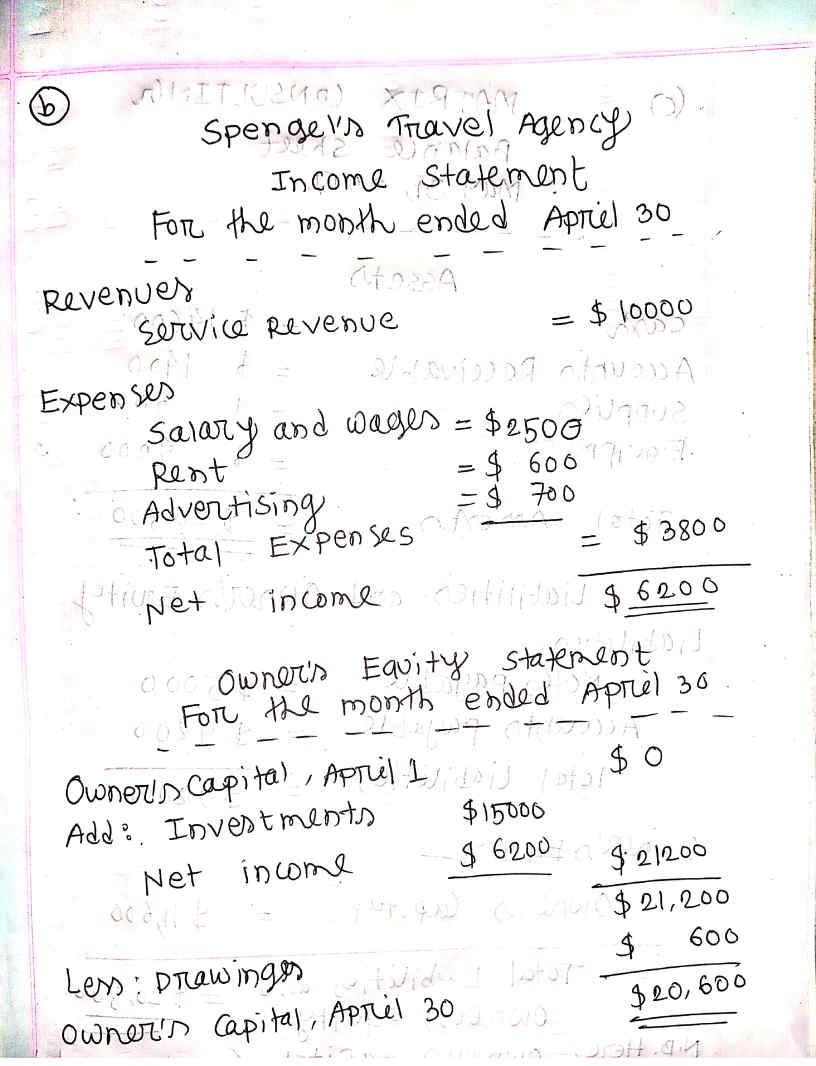 b
Spengel's Travel Agency
Income Statement
For the month ended April 30
Revenues
Service Revenue = $ 10000
Expenses
Salary and wages = $2500
Rent = $ 600
Advertising = $ 700
Total Expenses = $ 3800
Net income $ 6200
Owner's Equity Statement
For the month ended April 30
Owner's Capital, April 1 $ 0
Add: Investments $15000
Net income $ 6200 $ 21200
$ 21,200
Less: Drawings $ 600
Owner's Capital, April 30 $20,600